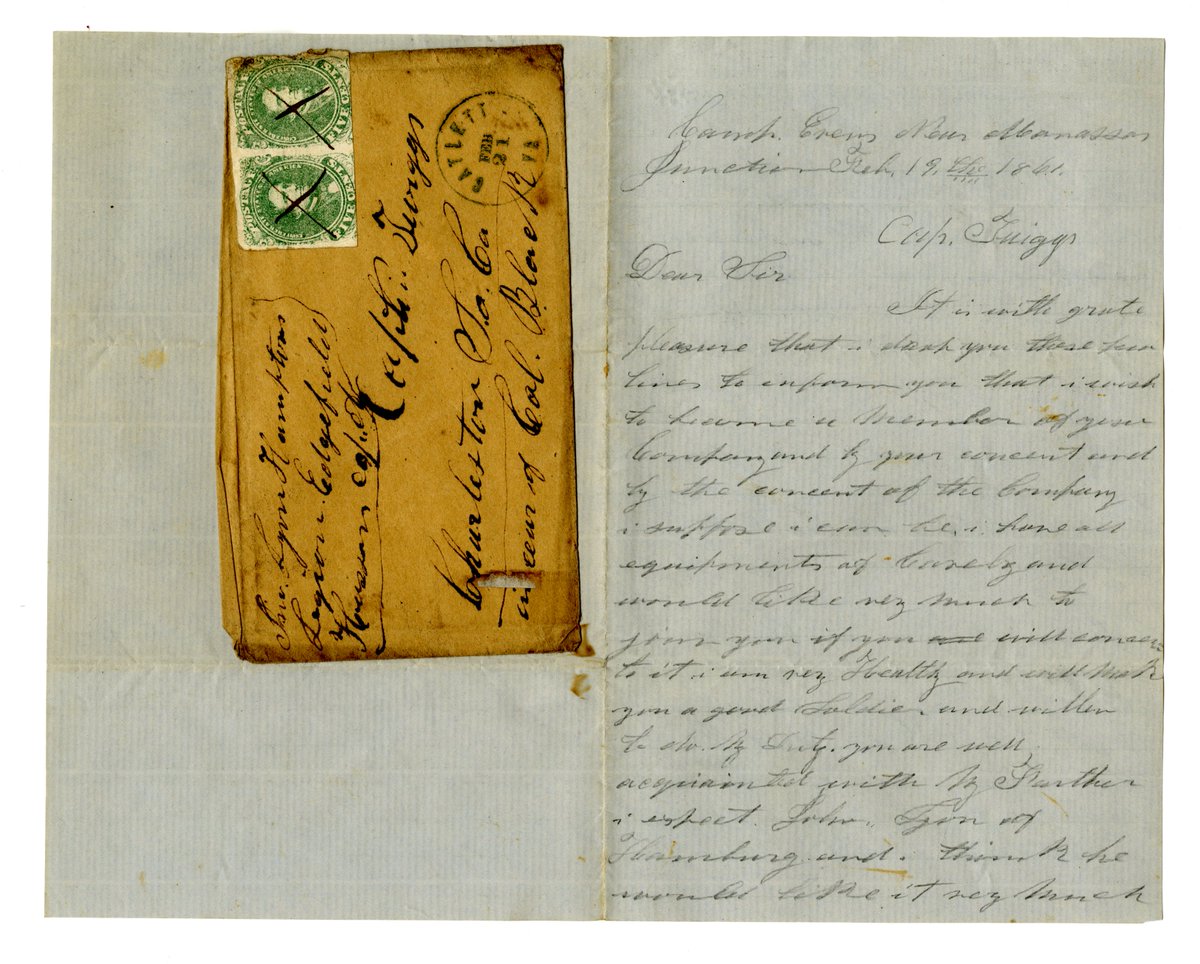 CATLETT
FEB
21
VA
Capt. Twiggs
Charleston So. Ca
in care of Col. Black
Hampton
Legion Edgefield
Camp. Near Manassas
Junction Feb. 19. the 1861.
Cap. Twiggs
Dear Sir
It is with grate
pleasure that i drop you these few
lines to inform you that i wish
to become a Member of your
Company and by your concent and
by the concent of the Company
i suppose i can be. i have all
equipments of Cavelry and
would like very much to
join you if you will concent
to it. i am very Healthy and will make
you a good Soldier and willen
to do My Duty. you are well
acquainted with My Farther
i expect. John. Tyon of
Hamburg and i think he
would like it very Much